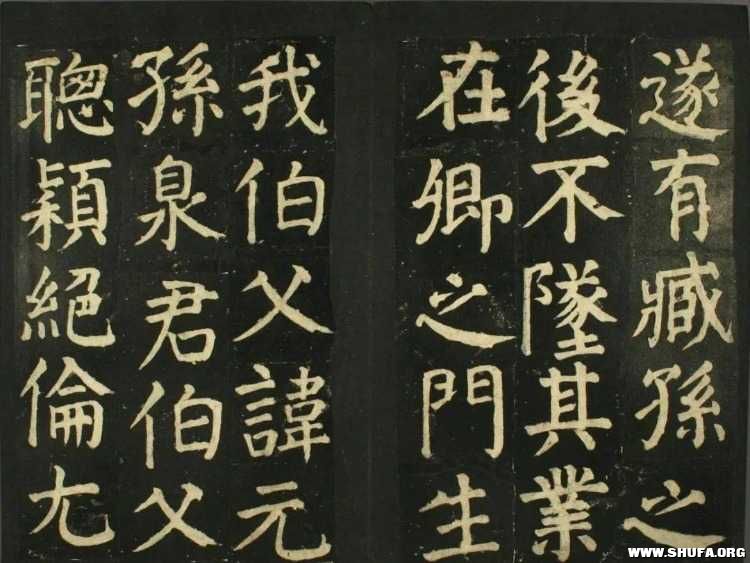 遂有臧孫之
後不墜其業
在卿之門生
我伯父諱元
孫泉君伯父
聰穎絕倫尤
WWW.SHUFA.ORG